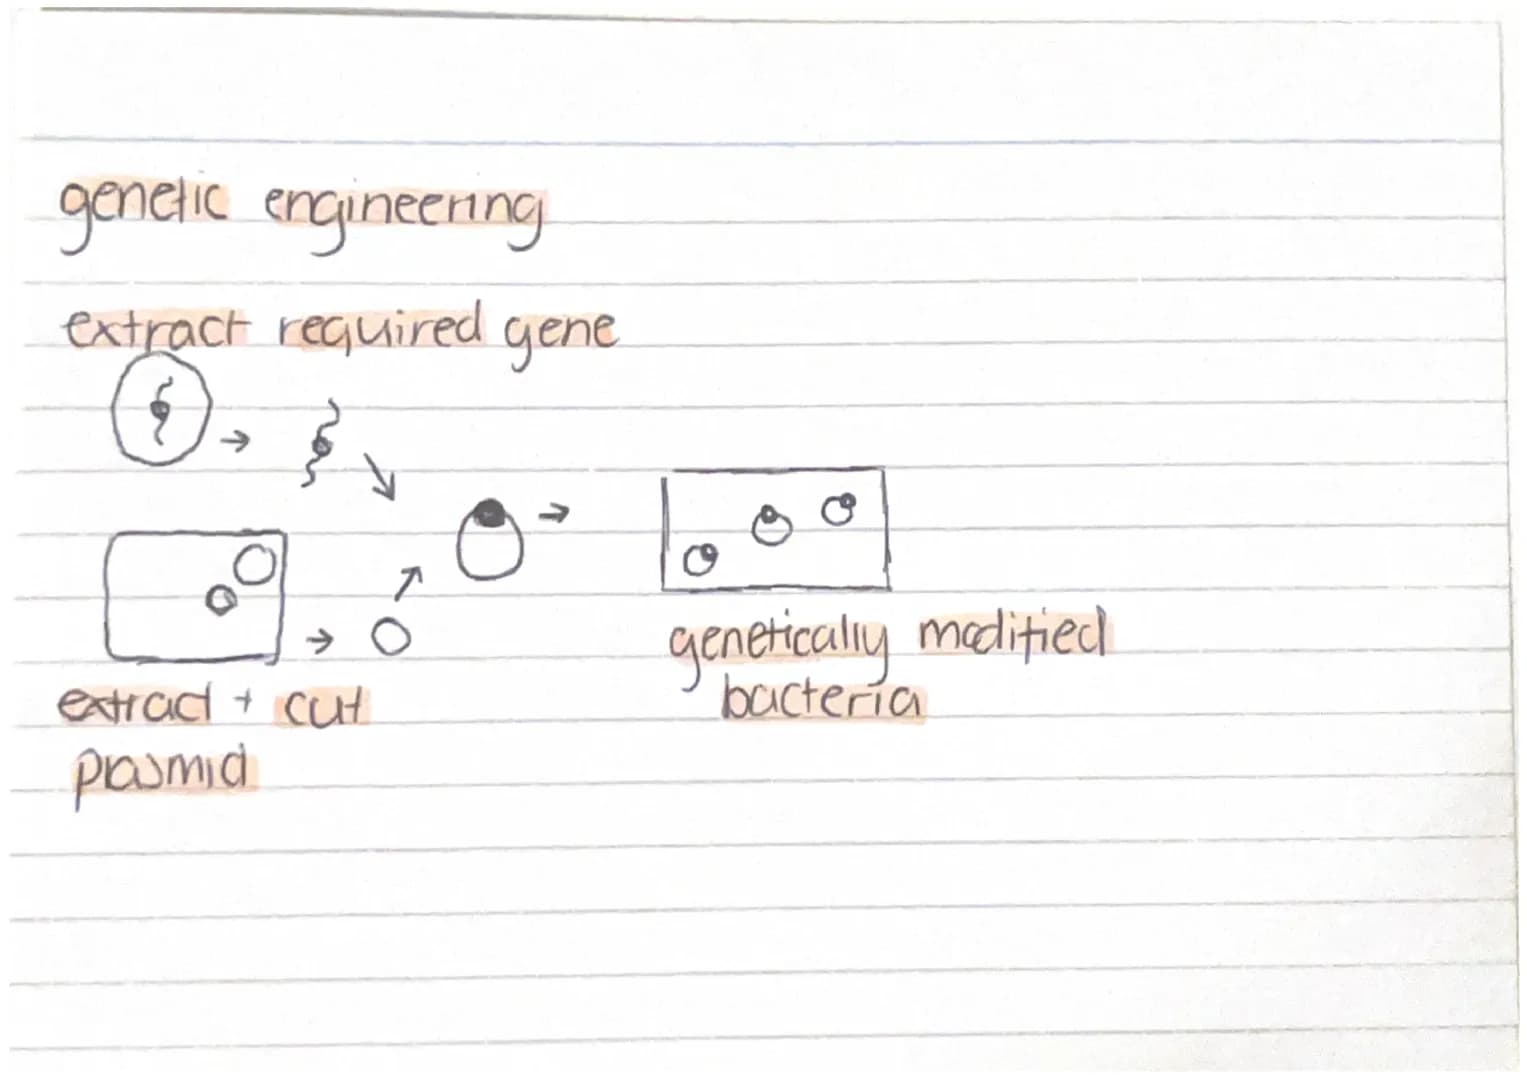 genetic engineering
extract required gene
genetically modified
bacteria
extract + cut
plasmid